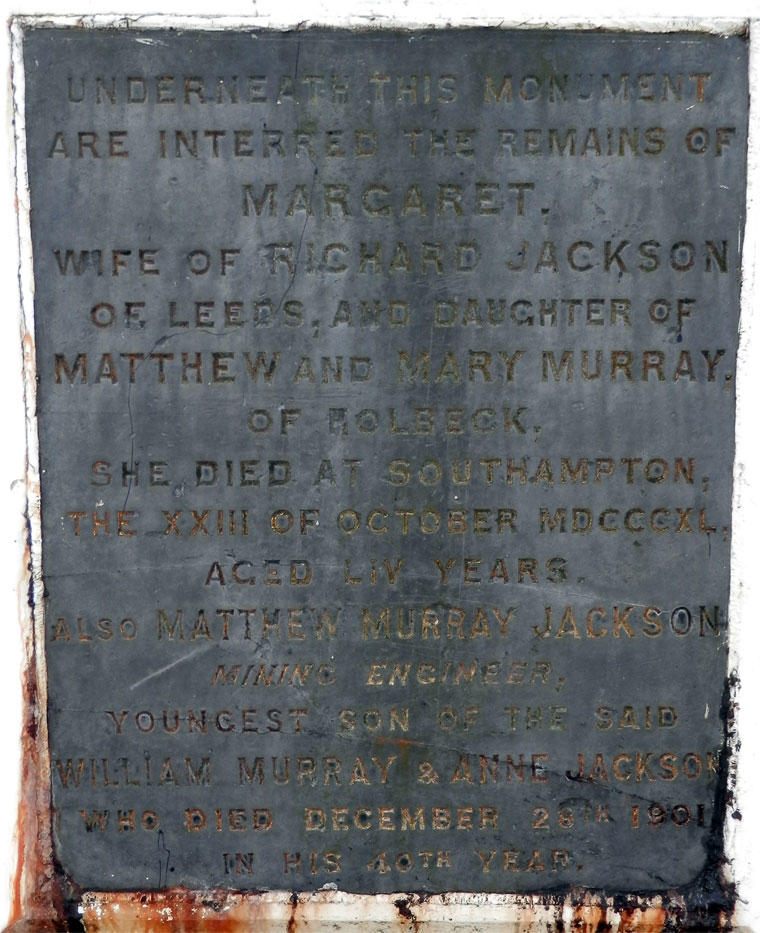 UNDERNEATH THIS MONUMENT
ARE INTERRED THE REMAINS OF
MARGARET,
WIFE OF RICHARD JACKSON
OF LEEDS, AND DAUGHTER OF
MATTHEW AND MARY MURRAY,
OF HOLBECK,
SHE DIED AT SOUTHAMPTON,
THE XXIII OF OCTOBER MDCCCXL,
AGED LIV YEARS.
ALSO MATTHEW MURRAY JACKSON
MINING ENGINEER,
YOUNGEST SON OF THE SAID
WILLIAM MURRAY & ANNE JACKSON
WHO DIED DECEMBER 28TH 1901
IN HIS 40TH YEAR.